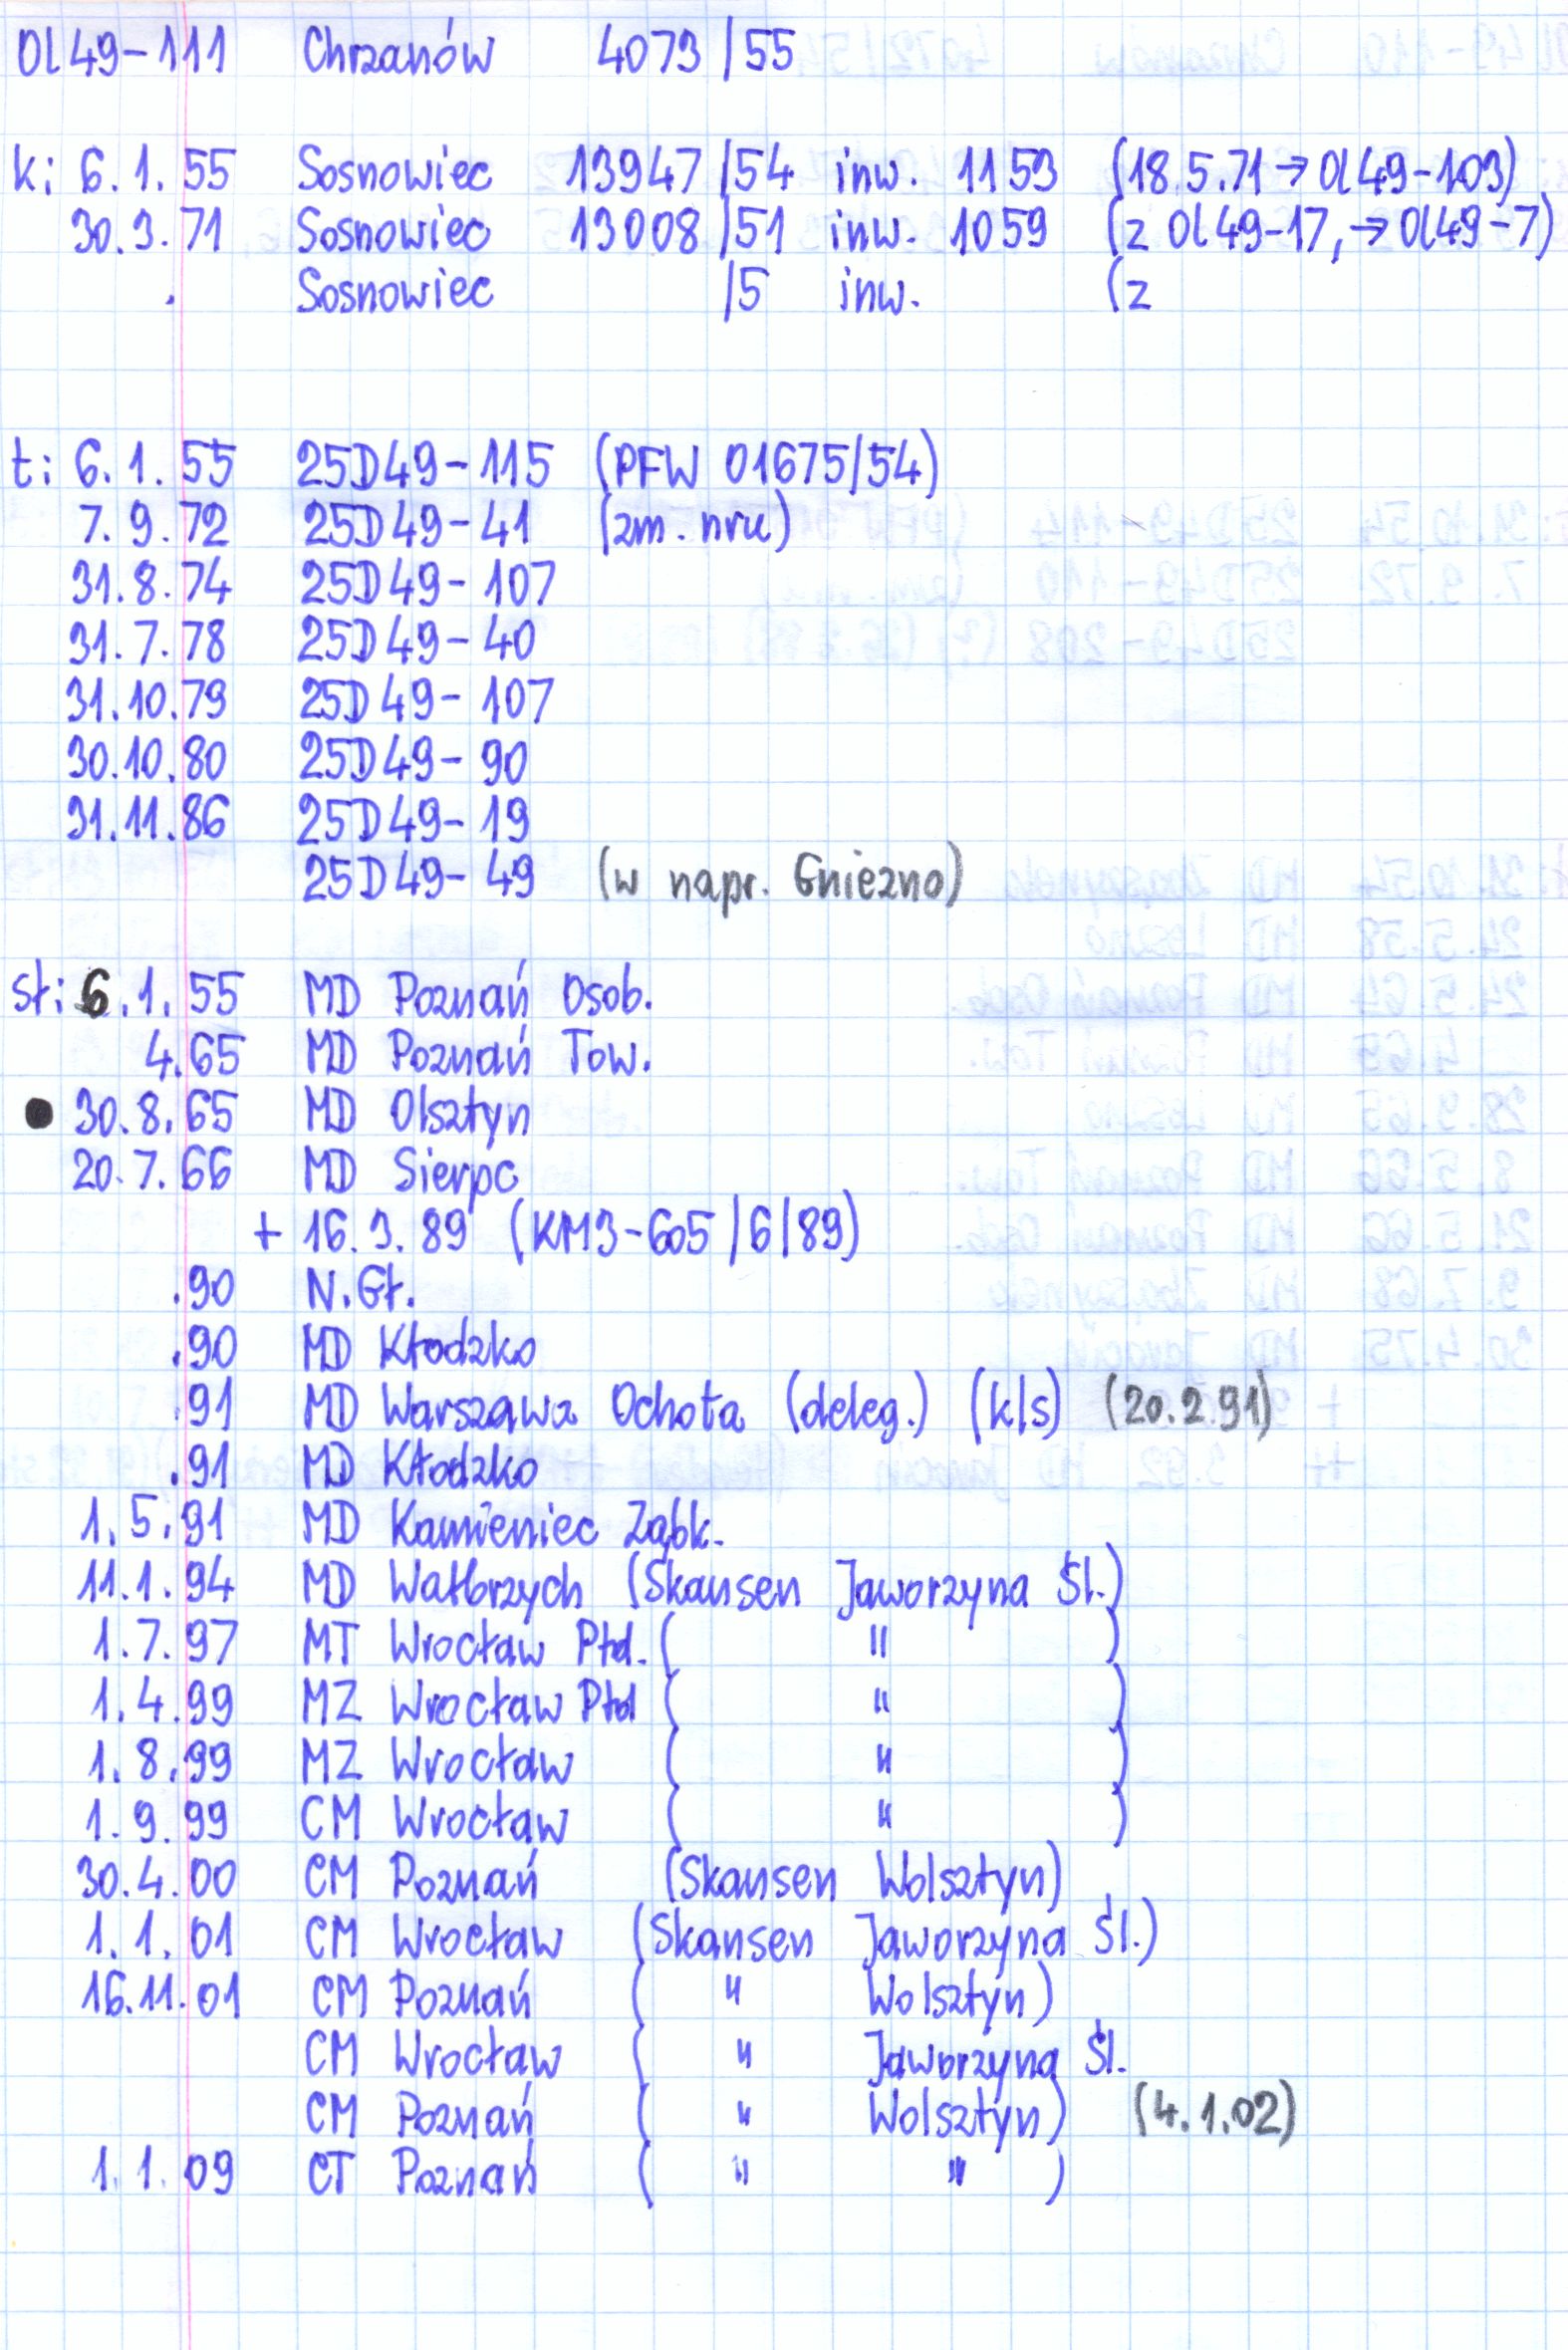 Ol49-111 Chrzanów 4073/55
k: 6.1.55 Sosnowiec 13947/54 inw. 1153 (18.5.71→Ol49-103)
30.3.71 Sosnowiec 13008/51 inw. 1059 (z Ol49-17,→Ol49-7)
. Sosnowiec /5 inw. (z
t: 6.1.55 25D49-115 (PFW 01675/54)
7.9.72 25D49-41 (zm. nru)
31.8.74 25D49-107
31.7.78 25D49-40
31.10.79 25D49-107
30.10.80 25D49-90
31.11.86 25D49-19
25D49-49 (w napr. Gniezno)
sł: 6.1.55 MD Poznań Osob.
4.65 MD Poznań Tow.
● 30.8.65 MD Olsztyn
20.7.66 MD Sierpc
+ 16.3.89 (KM3-605/6/89)
.90 N.Gł.
.90 MD Kłodzko
.91 MD Warszawa Ochota (deleg.) (k/s) (20.2.91)
.91 MD Kłodzko
1.5.91 MD Kamieniec Ząbk.
11.1.94 MD Wałbrzych (Skansen Jaworzyna Śl.)
1.7.97 MT Wrocław Ptd. ( " )
1.4.99 MZ Wrocław Ptd ( " )
1.8.99 MZ Wrocław ( " )
1.9.99 CM Wrocław ( " )
30.4.00 CM Poznań (Skansen Wolsztyn)
1.1.01 CM Wrocław (Skansen Jaworzyna Śl.)
16.11.01 CM Poznań ( " Wolsztyn)
CM Wrocław ( " Jaworzyna Śl.
CM Poznań ( " Wolsztyn) (4.1.02)
1.1.09 CT Poznań ( " " )